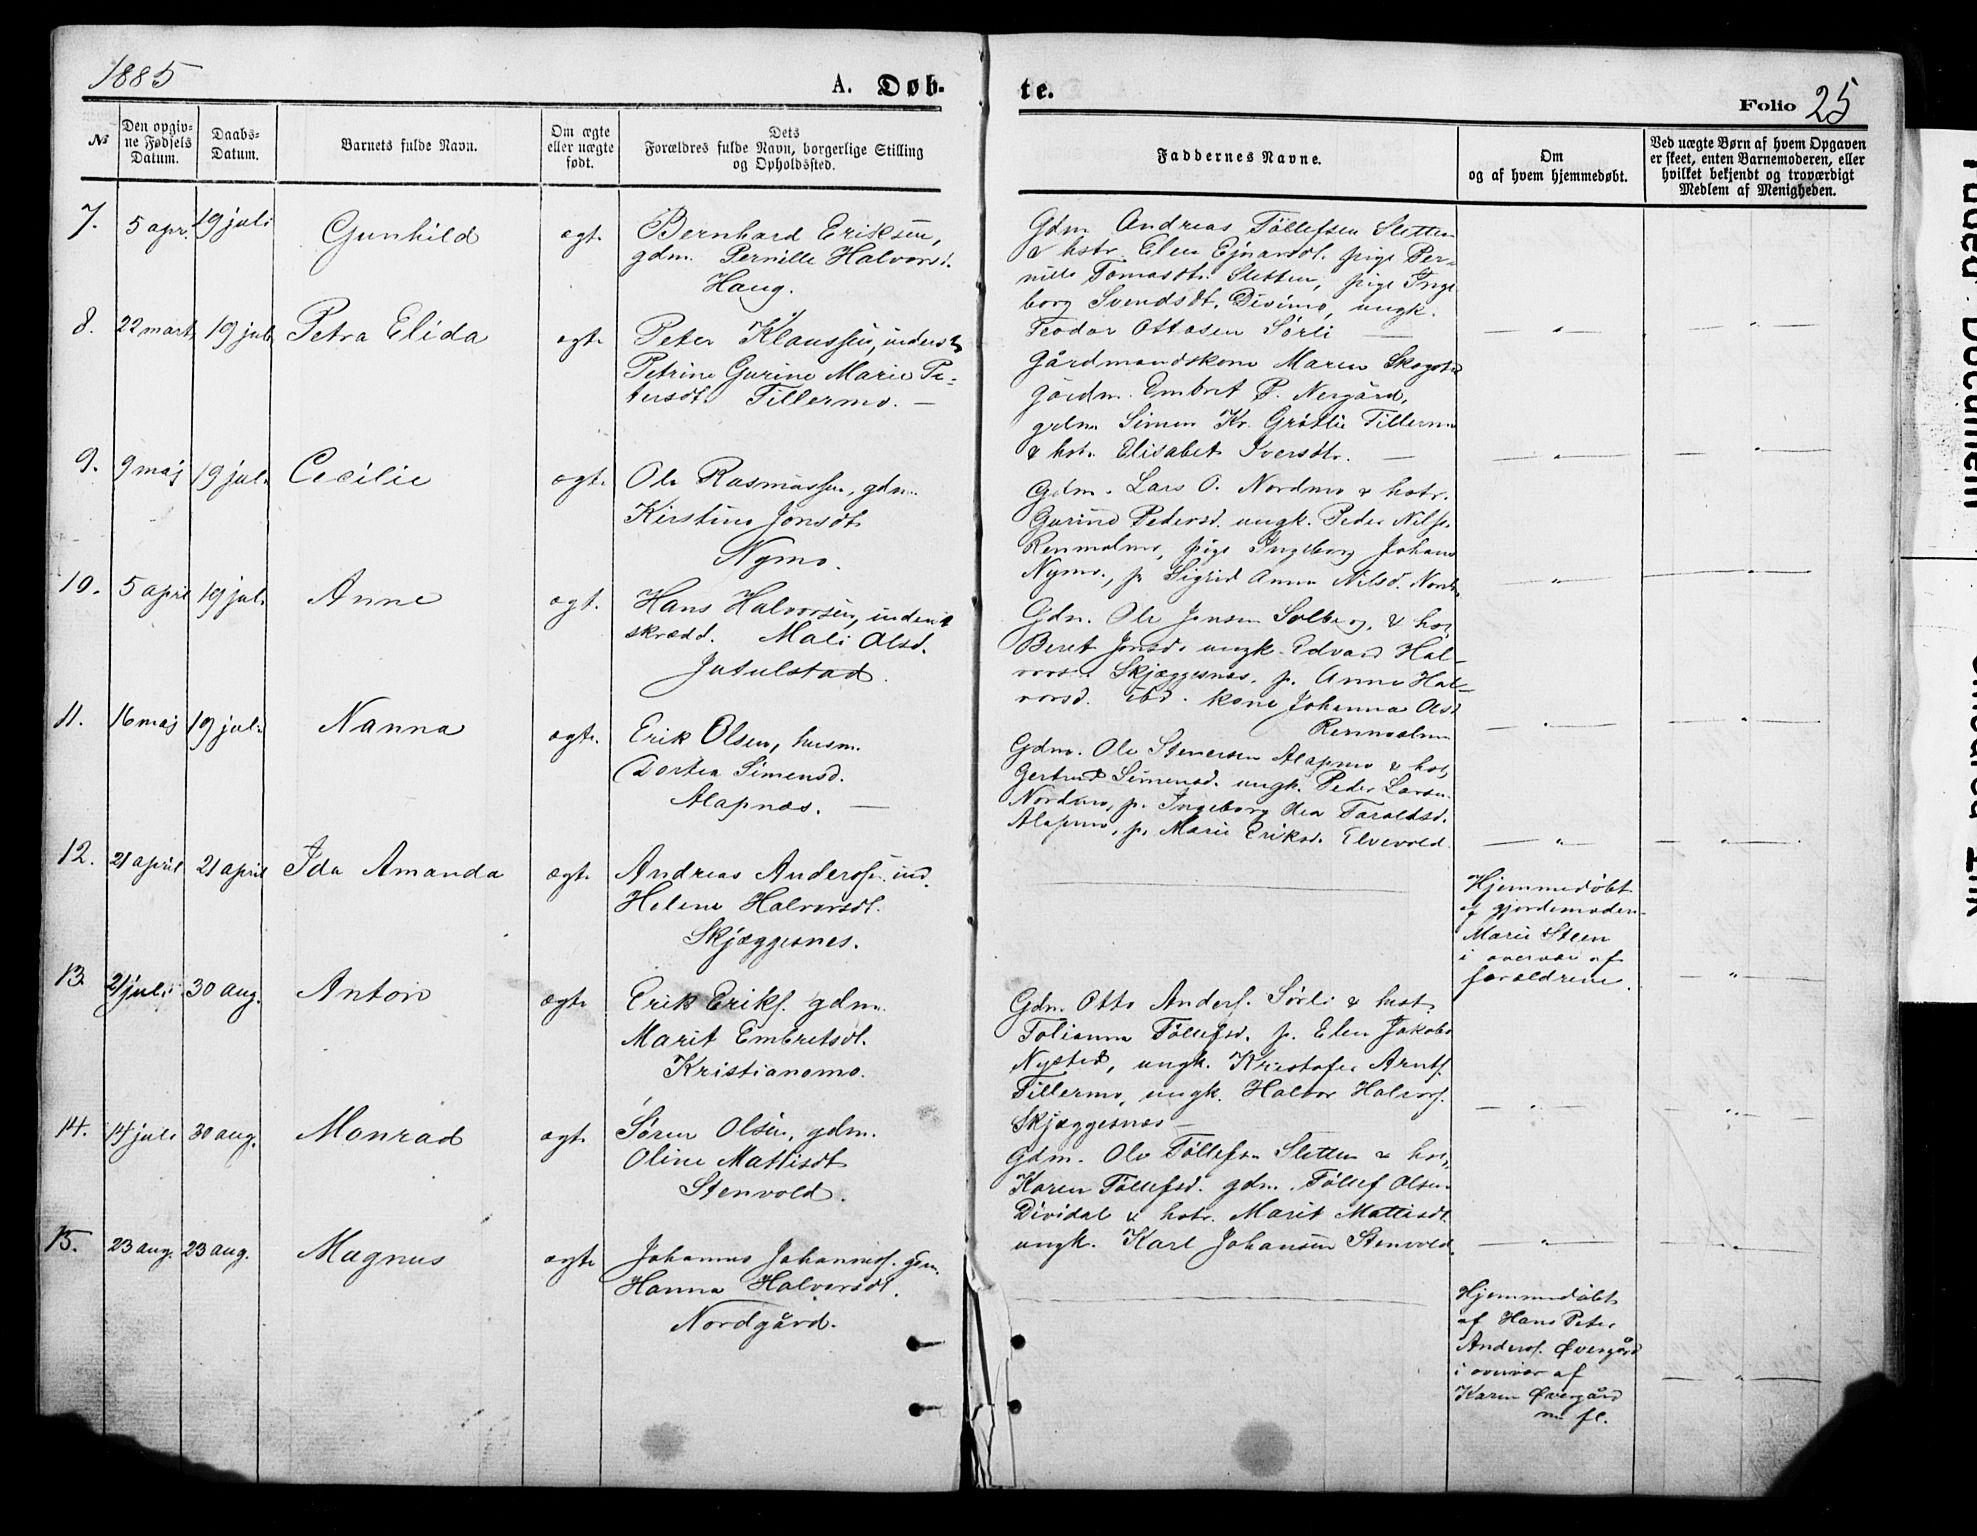 1885
A. Døb-
te.
Folio 25
№
Den opgiv-
ne Fødsels
Datum.
Daabs-
Datum.
Barnets fulde Navn.
Om ægte
eller uægte
født.
Dets
Forældres fulde Navn, borgerlige Stilling
og Opholdssted.
Faddernes Navne.
Om
og af hvem hjemmedøbt.
Ved uægte Børn af hvem Opgaven
er skeet, enten Barnemoderen, eller
hvilket bekjendt og troværdigt
Medlem af Menigheden.
7. 5 apr. 19 juli Gunhild ægt.
Bernhard Eriksen,
gdm. Pernille Halvorsd.
Haug.
Gdm. Andreas Töllefsen Sletten
& hstr. Elen Ejnarsdt. pige Per-
nille Tomasdt. Sletten, pige Inge
borg Svendsdt. Divimo, ungk.
Teodor Ottosen Sörli —
— " —
— " —
8. 22 mart 19 juli Petra Elida ægt.
Peter Klaussen, inderst
Petrine Gurine Marie Pe-
tersdt. Tillermo. —
Gårdmandskone Maren Skogst
gårdm. Embret P. Nergård,
gdm Simon Kr. Gröttie Tillermo
& hst. Elisabet Iversdtr. —
— " —
— " —
9. 9 maj 19 juli Cecilie ægt.
Ole Rasmussen, gdm.
Kirstine Jonsdt.
Nymo.
Gdm. Lars O. Nordmo & hstr.
Gurine Pedersd. ungk. Peder Nilss.
Renmalmo, pige Ingeborg Johans
Nymo., p. Sigrid Anna Nilsd. Nord
— " —
— " —
10. 5 april 19 juli Anne ægt.
Hans Halvorsen, inderst
skrædd. Mali Olsd.
Jutulstad.
Gdm. Ole Jensen Solberg, & hst.
Beret Jonsd. ungk. Edvard Hal-
vors. Skjæggesnes. p. Anne Hal-
vorsd. ibd. kone Johanna Olsd
Renmalmo
— " —
— " —
11. 16 maj 19 juli Nanna ægt.
Erik Olsen, husm.
Dortea Simensd.
Alapnæs. —
Gdm. Ole Stenersen Alapmo & hst,
Gertrud Simensd. ungk. Peder Larsen
Nordmo, p. Ingeborg Taraldsd.
Alapmo, p. Marie Eriksd. Elvevold.
— " —
— " —
12. 21 april 21 april Ida Amanda ægt.
Andreas Anderss. ind.
Helene Halvorsdt.
Skjæggesnes.
Hjemmedöbt
af gjordemoderen
Marie Steen
i overvær af
forældrene.
— " —
13. 21 juli 30 aug. Anton ægt.
Erik Eriks. gdm.
Marit Embretsdt.
Kristianomo.
Gdm. Otto Anders. Sörli & hust.
Tolianna Töllefsd. p. Elen Jakobs
Nysted, ungk. Kristofer Arnts.
Tillermo, ungk. Halvor Halvors.
Skjæggesnes —
— " —
— " —
14. 14 juli 30 aug. Monrad ægt.
Sören Olsen, gdm.
Oline Mattisdt
Stenvold.
Gdm. Ole Töllefsen Sletten & hst.,
Karen Töllefsd. gdm. Töllef Olsen
Dividal & hstr. Marit Mattisdt.
ungk. Karl Johansen Stenvold.
— " —
— " —
15. 23 aug. 23 aug. Magnus ægt.
Johannes Johanness. gdm.
Hanna Halvorsdt.
Nordgård.
Hjemmedöbt
af Hans Peter
Anders. Øvergård
i overvær af
Karen Øvergård
m. fl.
— " —